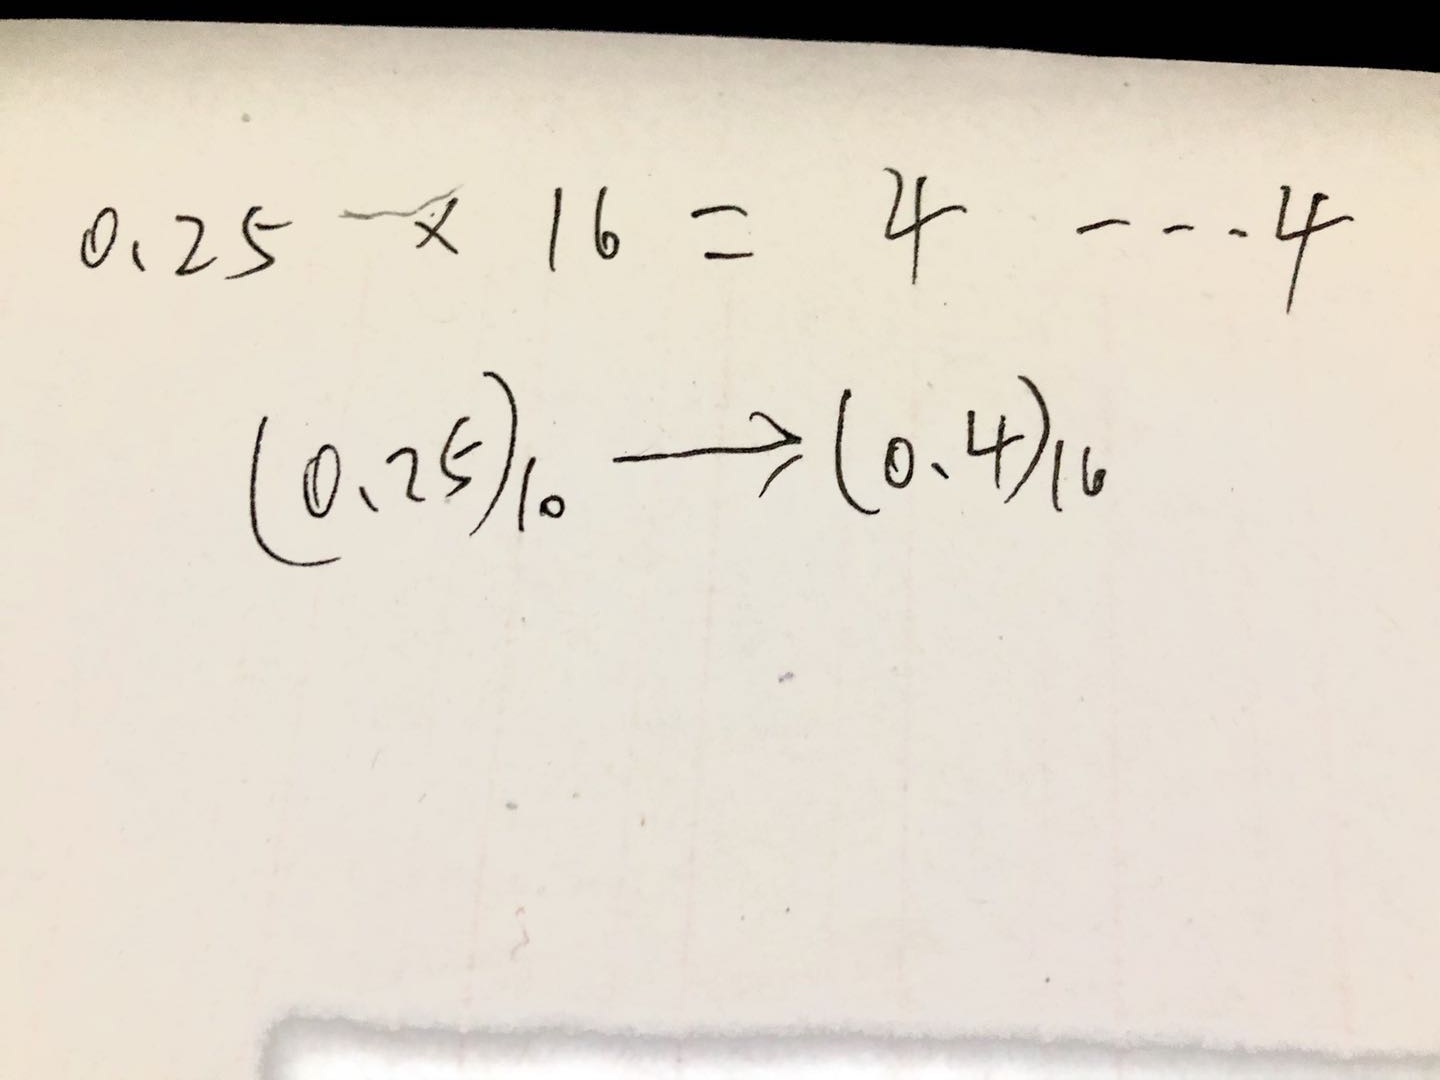 0.25 × 16 = 4 ---.4
(0.25)10 → (0.4)16